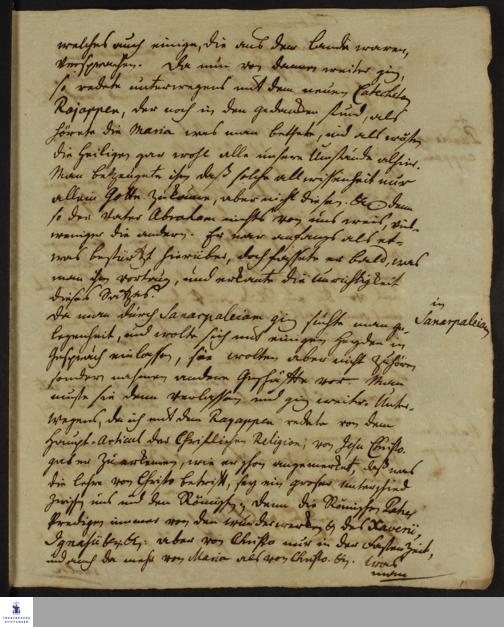 welches auch einige, die aus dem Lande waren,
versprachen. Da man nun von dannen weiter ging,
so redete unterwegens mit dem neuen Catecheten
Rajappen, der noch in den gedancken stund, als
hörete die Maria was man bethete, und als wüsten
die heiligen gar wohl alle unsere Umstände alhier.
Man bezeugete ihm daß solche allwissenheit nur
allein Gott zukäme, aber nicht diesen. Denn
so der Vater Abraham nichts von uns weis, viel
weniger die andern. Er war anfangs als et-
was bestürtzt hierüber, doch fassete er bald, was
man ihm vortrug, und erkante die Unrichtigkeit
dieses Satzes.
in
Sanarpaleiam
Da man durch Sanarpaleiam ging suchte man ge-
legenheit, und wolte sich mit einigen Heyden in
Gespräch einlassen, sie wolten aber nicht zuhören
sondern nahmen andere Geschäffte vor. Man
muste sie denn verlassen und ging weiter. Unter-
wegens, da ich mit dem Rajappen redete von dem
Haupt-Articul der Christlichen Religion, von Jesu Christo.
gab er zu erkennen, wie er schon angemerckt, daß was
die Lehre von Christo betrifft, sey ein großer unterschied
zwischen uns und den Römischen, denn die Römischen Patres
Predigen immer von den wunderwercken des Xaverii,
Ignatii aber von Christo nur in der Fastenzeit,
und auch da mehr von Maria als von Christo. Was
man
FRANCKESCHE
STIFTUNGEN